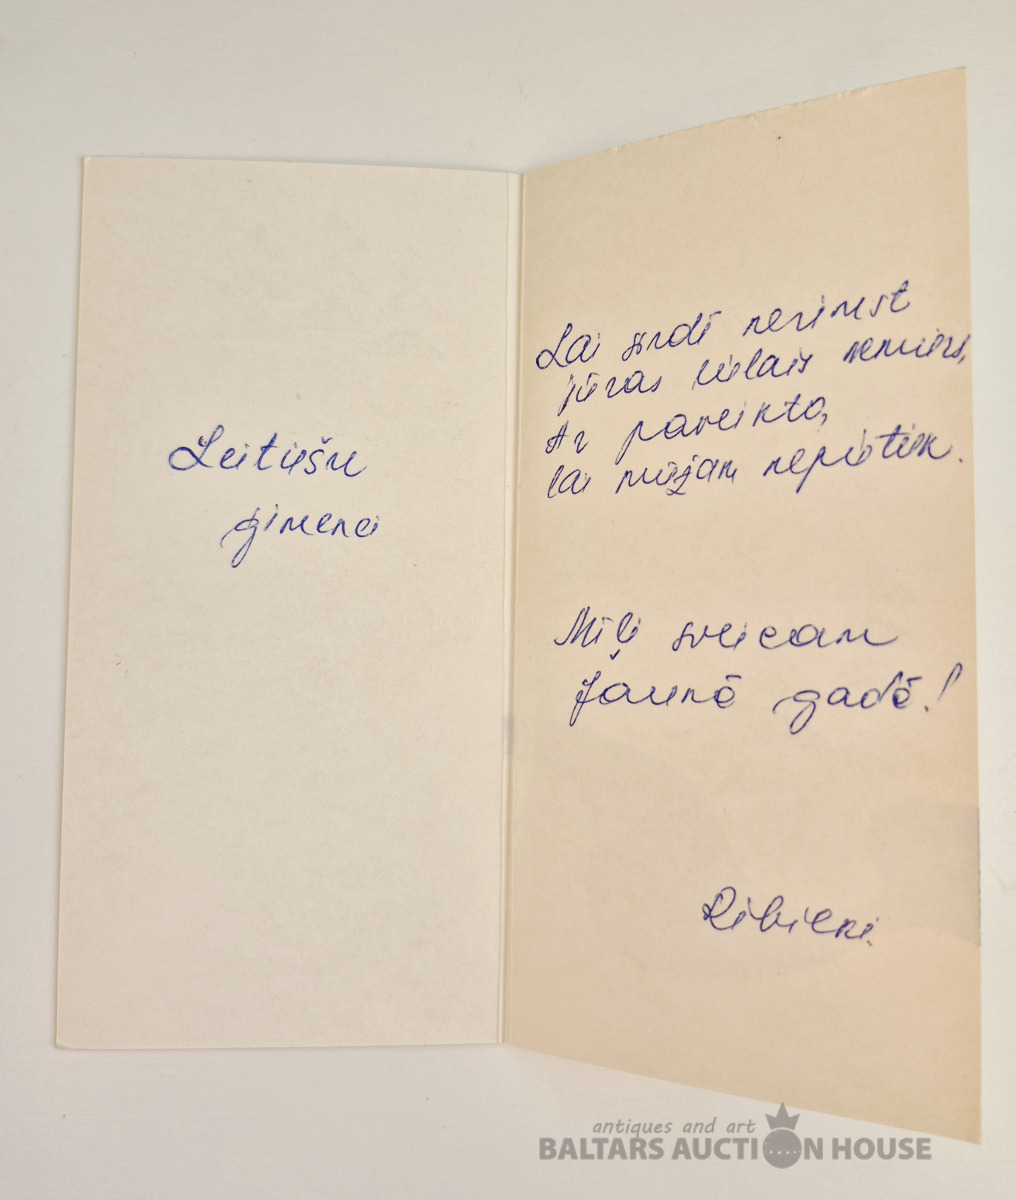 Leitiešu
ģimenei
Lai sirdī nerimst
jūras lielais nemiers,
Ar paveikto,
lai mūžam nepietiek.
Mīļi sveicam
Jaunā gadā!
Ribicki.
antiques and art
BALTARS AUCTION HOUSE